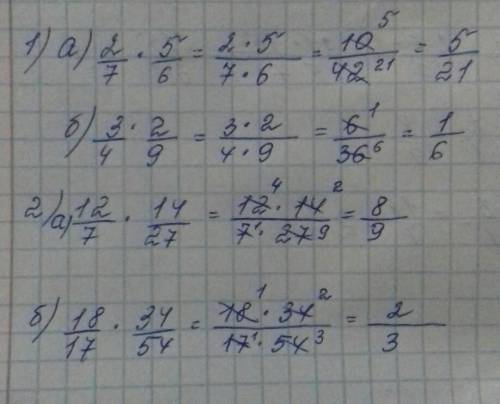 1) а) 2/7 · 5/6 = 2 · 5/7 · 6 = 10 5/42 21 = 5/21
б) 3/4 · 2/9 = 3 · 2/4 · 9 = 6 1/36 6 = 1/6
2) а) 12/7 · 14/27 = 12 4 · 14 2/7 1 · 27 9 = 8/9
б) 18/17 · 34/54 = 18 1 · 34 2/17 1 · 54 3 = 2/3